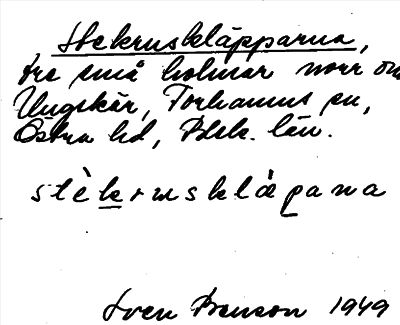 Stekruskläpparna,
tre små holmar norr om
Ungskär, Torhamns sn,
Östra hd, Blek. län.
stèkrusklapana
Sven Benson 1949